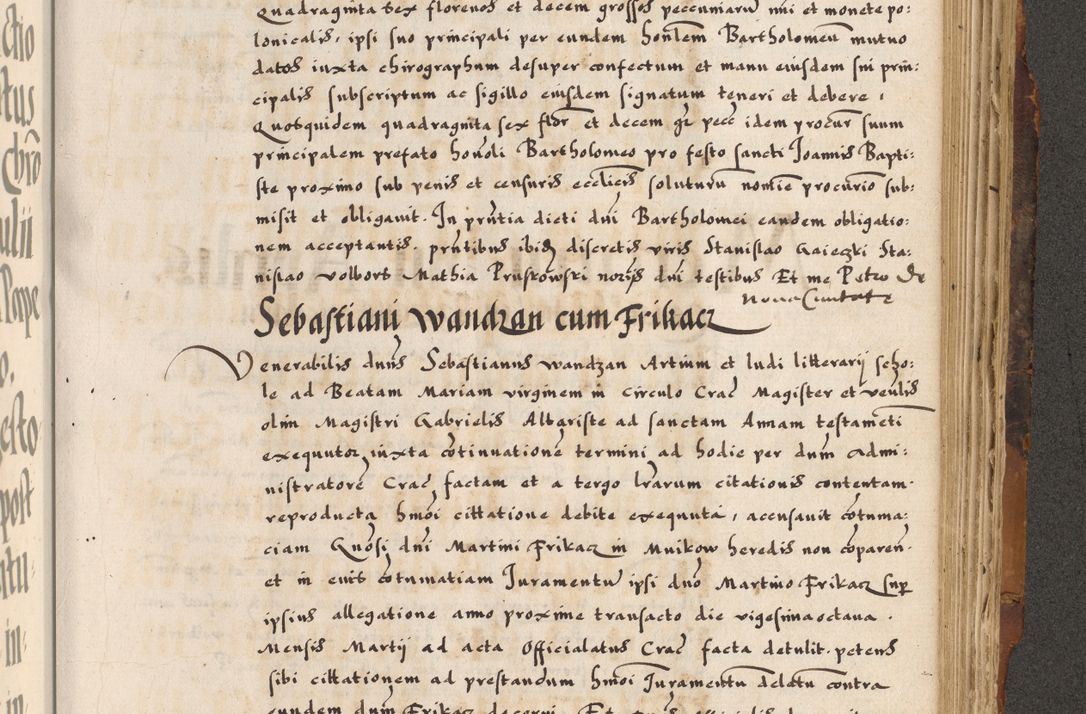 Quadraginta sex florenos et decem grossos pecuniarũ nũi et monete po:
lonicalis, ipsi suo principali per eundem honlem Bartholomeũ mutuo
datos iuxta chirographum desuper confectum et manu eiusdem sui prin:
cipalis subscriptum ac sigillo eiusdem signatum teneri et debere,
Quosquidem quadraginta sex flor et decem gr pecc idem procur suum
principalem prefato honoli Bartholomeo pro festo sancti Joannis Bapti:
ste proximo sub penis et censuris ecclicis soluturũ nomie procurio sub:
misit et obligauit. In pñtia dicti dni Bartholomei eandem obligatio:
nem acceptantis. pñtibus ibid discretis viris Stanislao Gaieczki Sta:
nislao volbors Mathia Pruskowski noriis dni testibus Et me Petro De
noua Ciuitate
Sebastiani wandzan cum Frikacz
Venerabilis dnus Sebastianus wandzan Artium et ludi litterarij scho:
le ad Beatam Mariam virginem in circulo Crac Magister et venlis
olim Magistri Gabrielis Altariste ad sanctam Annam testamẽti
exequutor iuxta cõtinuatione termini ad hodie per dnm Admi:
nistratore Crac factam et a tergo lrarum citationis contentam.
reproducta hmõi cittatione debite exequuta, accusauit cõtuma:
ciam Gnosi dni Martini Frikacz in Muikow heredis non cõparen.
et in euis cõtumatiam Juramentũ ipsi dno Martino Frikacz sup
ipsius allegatione anno proxime transacto die vigesimaoctaua.
Mensis Martij ad acta Officialatus Crac facta detulit. petens
sibi cittationem ad prestandum hmõi Juramentũ delatũ contra
eundem dnm Frikacz decerni. Et